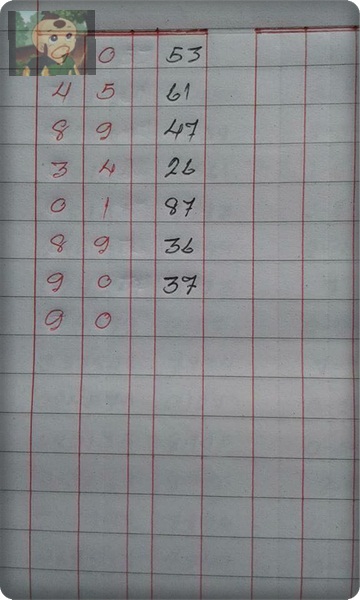 0 53
4 5 61
8 9 47
3 4 26
0 1 87
8 9 36
9 0 37
9 0